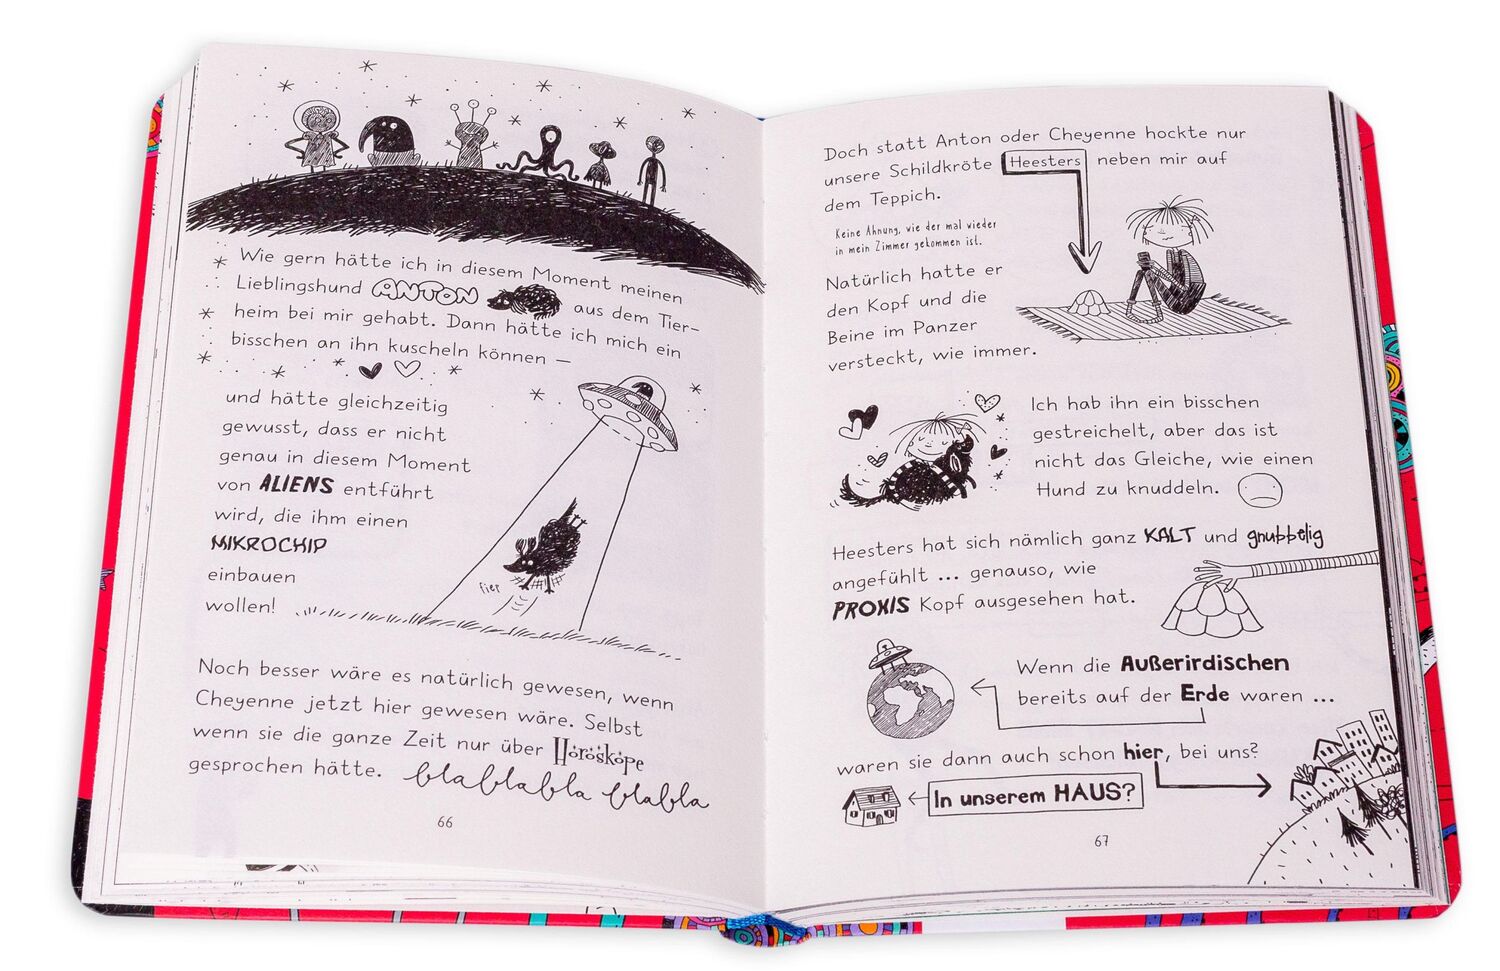 Wie gern hätte ich in diesem Moment meinen
Lieblingshund ANTON aus dem Tier-
heim bei mir gehabt. Dann hätte ich mich ein
bisschen an ihn kuscheln können –
und hätte gleichzeitig
gewusst, dass er nicht
genau in diesem Moment
von ALIENS entführt
wird, die ihm einen
MIKROCHIP
einbauen
wollen!
fiep
Noch besser wäre es natürlich gewesen, wenn
Cheyenne jetzt hier gewesen wäre. Selbst
wenn sie die ganze Zeit nur über Horoskope
gesprochen hätte. blablabla blabla
66
Doch statt Anton oder Cheyenne hockte nur
unsere Schildkröte Heesters neben mir auf
dem Teppich.
Keine Ahnung, wie der mal wieder
in mein Zimmer gekommen ist.
Natürlich hatte er
den Kopf und die
Beine im Panzer
versteckt, wie immer.
Ich hab ihn ein bisschen
gestreichelt, aber das ist
nicht das Gleiche, wie einen
Hund zu knuddeln.
Heesters hat sich nämlich ganz KALT und gnubbelig
angefühlt ... genauso, wie
PROXIS Kopf ausgesehen hat.
Wenn die Außerirdischen
bereits auf der Erde waren ...
waren sie dann auch schon hier, bei uns?
In unserem HAUS?
67